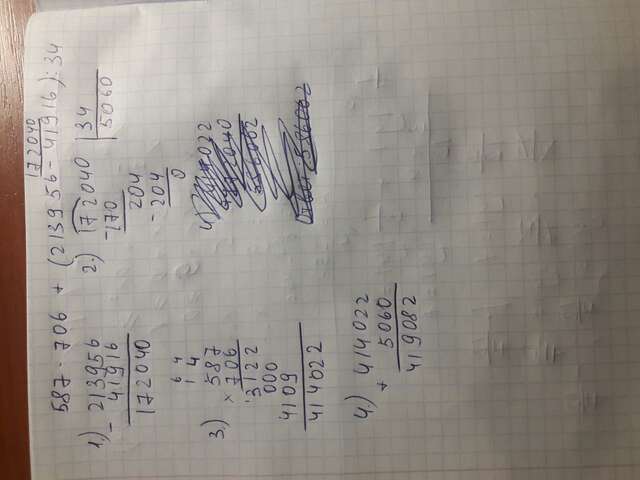 172040
587 · 706 + (213956 - 41916) : 34
1) - 213956
41916
172040
2) 172040 | 34
- 170 5060
204
- 204
0
3) 6 4
1 4
× 587
706
3122
000
4109
414022
4) + 414022
5060
419082